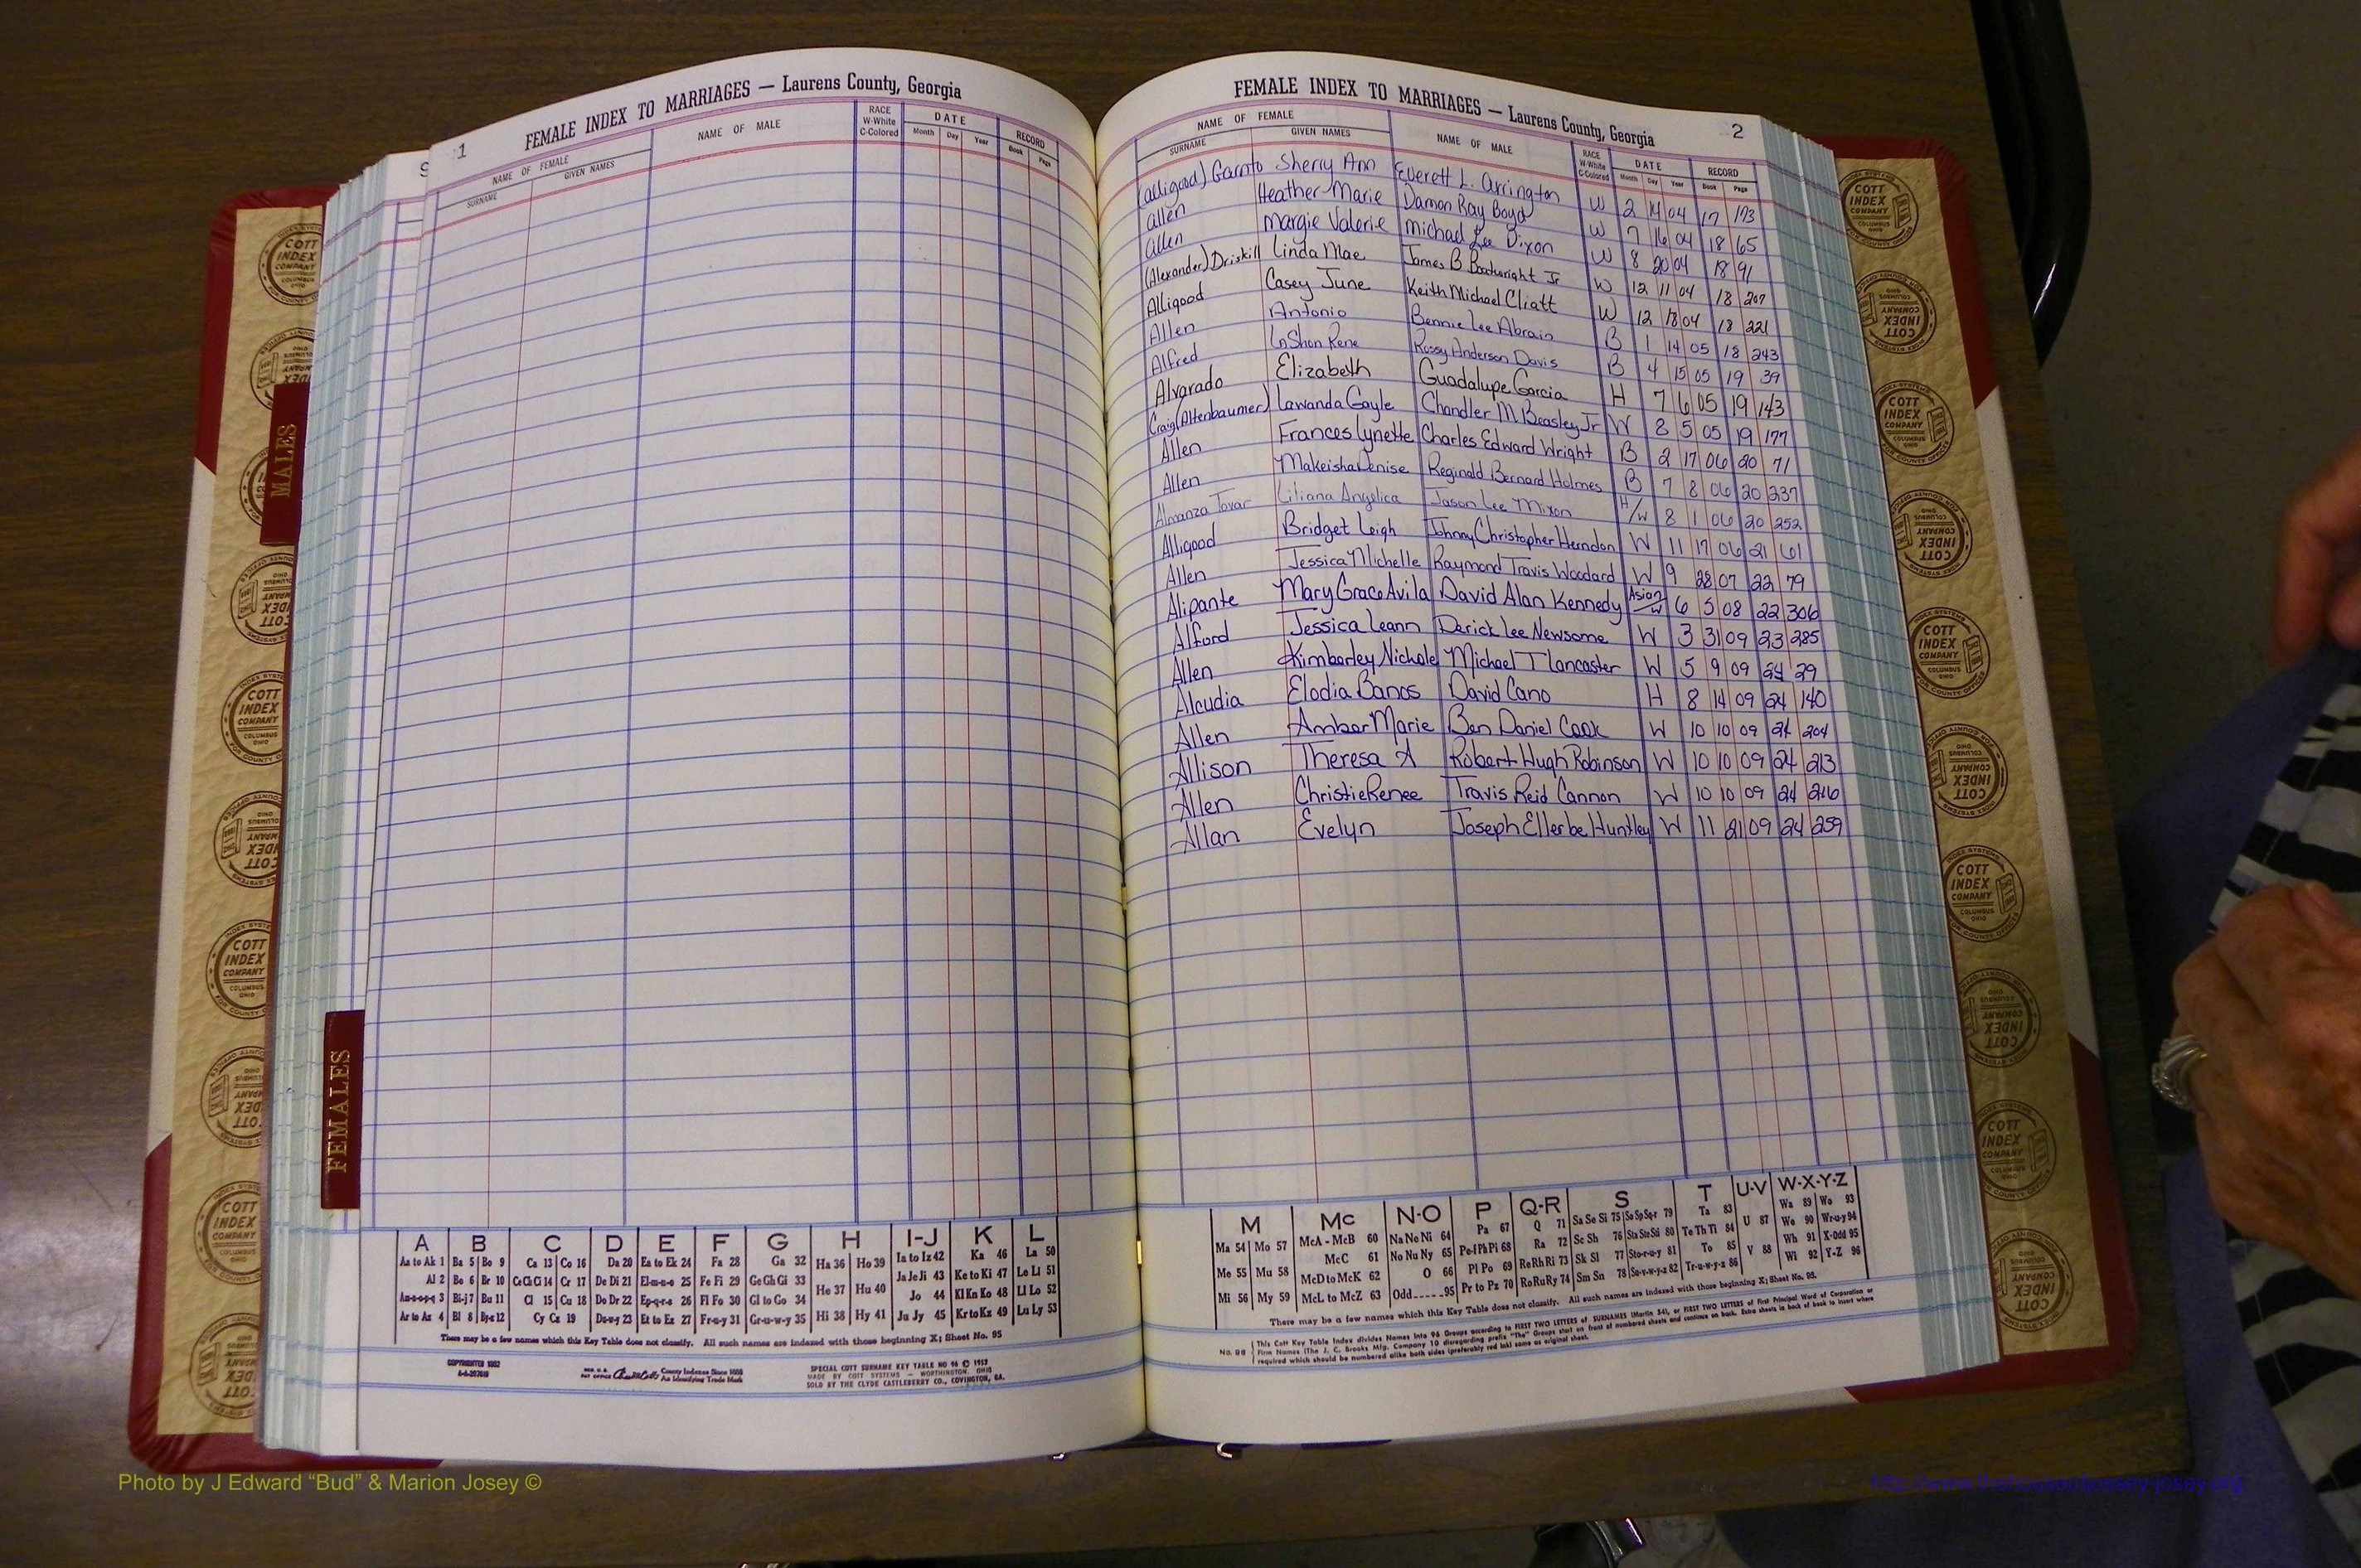 FEMALE INDEX TO MARRIAGES — Laurens County, Georgia
1
NAME OF FEMALE
SURNAME
GIVEN NAMES
NAME OF MALE
RACE
W-White
C-Colored
DATE
Month Day Year
RECORD
Book Page
FEMALE INDEX TO MARRIAGES — Laurens County, Georgia
2
NAME OF FEMALE
SURNAME
GIVEN NAMES
NAME OF MALE
RACE
W-White
C-Colored
DATE
Month Day Year
RECORD
Book Page
(Alligood) Garnto Sherry Ann Everett L. Arrington W 2 14 04 17 173
Allen Heather Marie Damon Ray Boyd W 7 16 04 18 65
Allen Margie Valerie Michael Lee Dixon W 8 20 04 18 91
(Alexander) Driskill Linda Mae James B Boatwright Jr W 12 11 04 18 207
Alligood Casey June Keith Michael Cliatt W 12 18 04 18 221
Allen Antonio Bennie Lee Abrain B 1 14 05 18 243
Alfred LaShon Rene Rossy Anderson Davis B 4 15 05 19 39
Alvarado Elizabeth Guadalupe Garcia H 7 6 05 19 143
Craig (Altenbaumer) Lawanda Gayle Chandler M. Beasley Jr W 8 5 05 19 177
Allen Frances Lynette Charles Edward Wright B 2 17 06 20 71
Allen Makeisha Denise Reginald Bernard Holmes B 7 8 06 20 237
Almanza Tovar Liliana Angelica Jason Lee Mixon H/W 8 1 06 20 252
Alligood Bridget Leigh Johnny Christopher Herndon W 11 17 06 21 61
Allen Jessica Michelle Raymond Travis Woodard W 9 28 07 22 79
Alipante Mary Grace Avila David Alan Kennedy Asian/W 6 5 08 22 306
Alford Jessica Leann Derick Lee Newsome W 3 31 09 23 285
Allen Kimberley Nichole Michael T Lancaster W 5 9 09 24 29
Alcudia Elodia Banos David Cano H 8 14 09 24 140
Allen Amber Marie Ben Daniel Cook W 10 10 09 24 204
Allison Theresa A Robert Hugh Robinson W 10 10 09 24 213
Allen Christie Renee Travis Reid Cannon W 10 10 09 24 216
Allan Evelyn Joseph Ellerbe Huntley W 11 21 09 24 259
MALES
FEMALES
A B C D E F G H I-J K L
Aa to Ak 1 Ba 5 Be 9 Ca 13 Co 16 Da 20 Ea to Ek 24 Fa 28 Ga 32 Ha 36 Ho 39 Ia to Iz 42 Ka 46 La 50
Al 2 Be 6 Br 10 Ce Ch Ci 14 Cr 17 De Di 21 El-m-n-o 25 Fe Fi 29 Ge Gh Gi 33 He 37 Hu 40 Ja Je Ji 43 Ke to Ki 47 Le Li 51
Am-n-o-p-q 3 Bi-j 7 Bu 11 Cl 15 Cu 18 Do Dr 22 Ep-q-r-s 26 Fl Fo 30 Gl to Go 34 Jo 44 Kl Kn Ko 48 Ll Lo 52
Ar to Az 4 Bl 8 By-z 12 Cy Cz 19 Du-w-y 23 Et to Ez 27 Fr-u-y 31 Gr-u-w-y 35 Hi 38 Hy 41 Ju Jy 45 Kr to Kz 49 Lu Ly 53
There may be a few names which this Key Table does not classify. All such names are indexed with those beginning X; Sheet No. 95
COPYRIGHTED 1952
County Indexes Since 1888
An Identifying Trade Mark
SPECIAL COTT SURNAME KEY TABLE NO 96 © 1952
MADE BY COTT SYSTEMS — WORTHINGTON, OHIO
SOLD BY THE CLYDE CASTLEBERRY CO., COVINGTON, GA.
M Mc N-O P Q-R S T U-V W-X-Y-Z
Ma 54 Mo 57 McA - McB 60 Na Ne Ni 64 Pa 67 Q 71 Sa Se Si 75 So Sp Sq-r 79 Ta 83 U 87 Wa 89 Wo 93
Me 55 Mu 58 McC 61 No Nu Ny 65 Pe-f Ph Pi 68 Ra 72 Sc Sh 76 Sta Ste Sti 80 Te Th Ti 84 We 90 Wr-u-y 94
McD to McK 62 O 66 Pl Po 69 Re Rh Ri 73 Sk Sl 77 Sto-r-u-y 81 To 85 V 88 Wh 91 X-Odd 95
Mi 56 My 59 McL to McZ 63 Odd-----95 Pr to Pz 70 Ro Ru Ry 74 Sm Sn 78 Su-v-w-y-z 82 Tr-u-w-y-z 86 Wi 92 Y-Z 96
There may be a few names which this Key Table does not classify. All such names are indexed with those beginning X; Sheet No. 95.
No. 96
This Cott Key Table Index divides Names Into 96 Groups according to FIRST TWO LETTERS of SURNAMES (Martin 54), or FIRST TWO LETTERS of First Principal Word of Corporation or
Firm Names (The J. C. Brooks Mfg. Company 10 disregarding prefix "The" Groups start on front of numbered sheets and continue on back. Extra sheets in back of book to insert where
required which should be numbered alike both sides (preferably red ink) same as original sheet.
COTT
INDEX
COMPANY
COLUMBUS
OHIO
INDEX SYSTEMS
FOR COUNTY OFFICES
Photo by J Edward “Bud” & Marion Josey ©
http://www.thehouseofjossey-josey.org